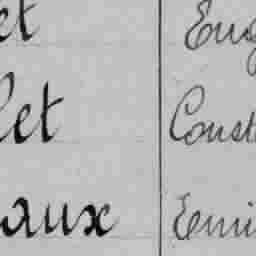 et Eug
let Const
aux Emi